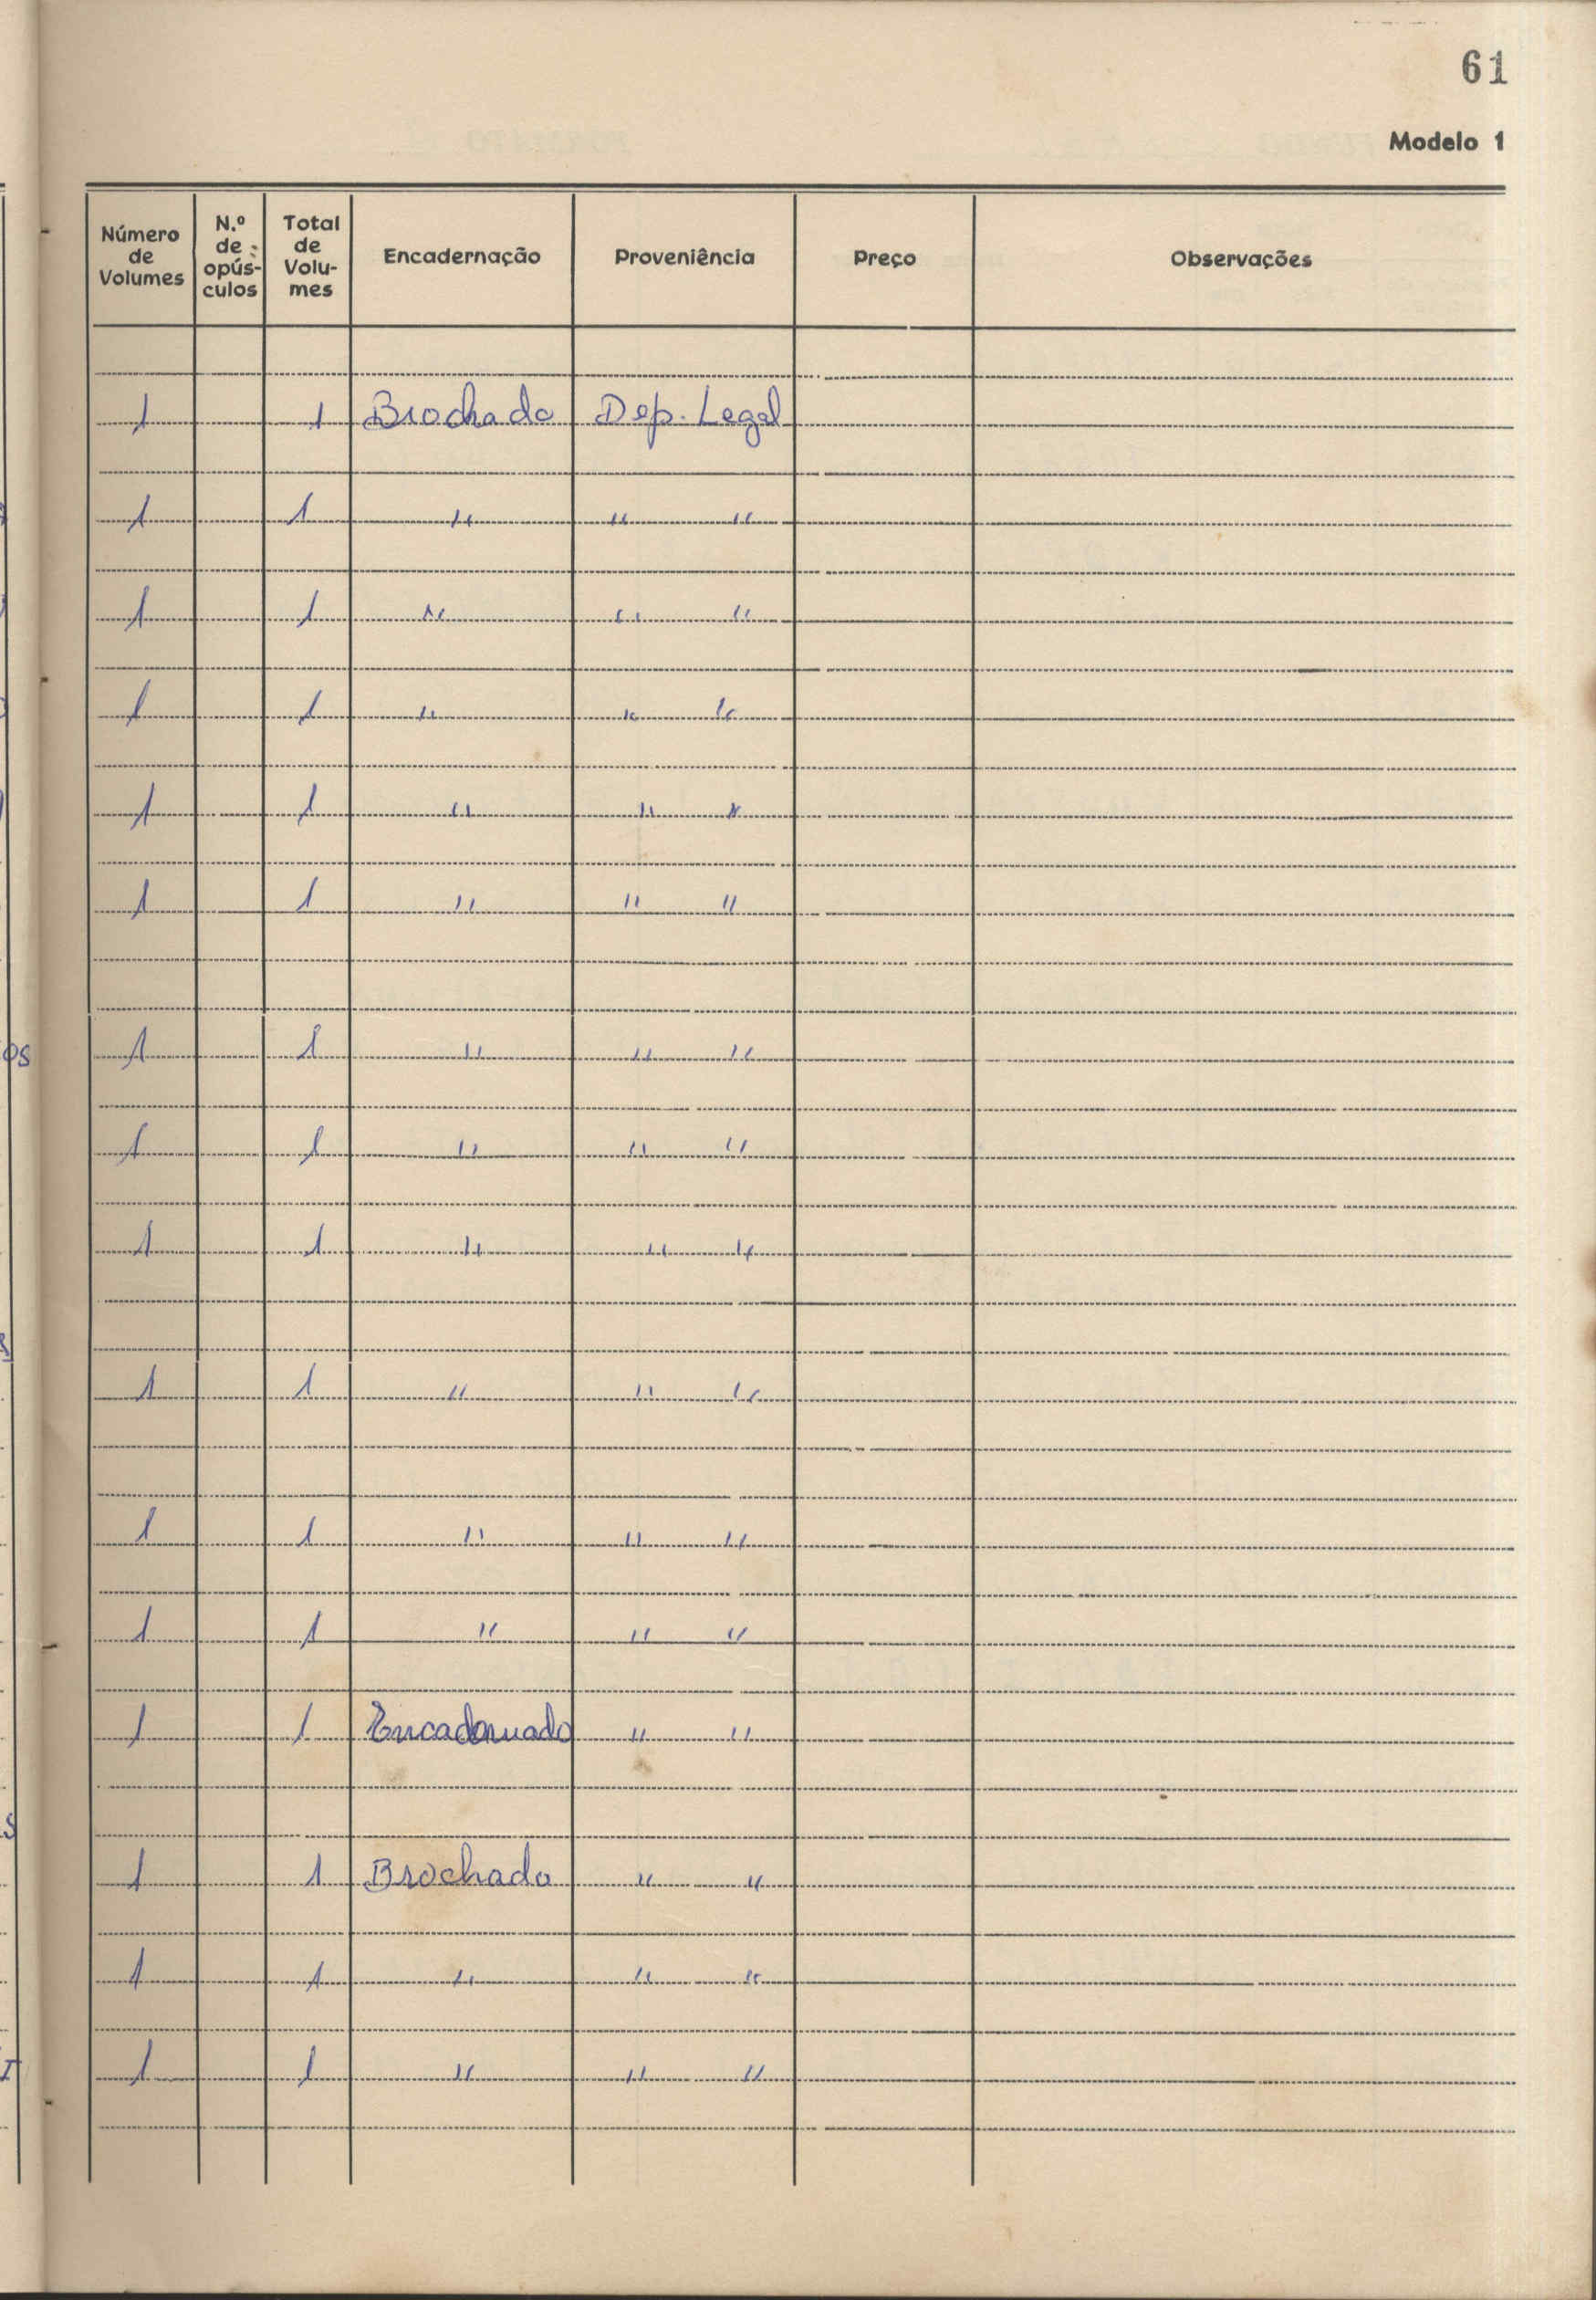 61
Modelo 1
Número de Volumes | N.º de opús-culos | Total de Volu-mes | Encadernação | Proveniência | Preço | Observações
1 | | 1 | Brochado | Dep. Legal
1 | | 1 | " | " "
1 | | 1 | " | " "
1 | | 1 | " | " "
1 | | 1 | " | " "
1 | | 1 | " | " "
os
1 | | 1 | " | " "
1 | | 1 | " | " "
1 | | 1 | " | " "
1 | | 1 | " | " "
1 | | 1 | " | " "
1 | | 1 | " | " "
1 | | 1 | Encadernado | " "
s
1 | | 1 | Brochado | " "
1 | | 1 | " | " "
1 | | 1 | " | " "